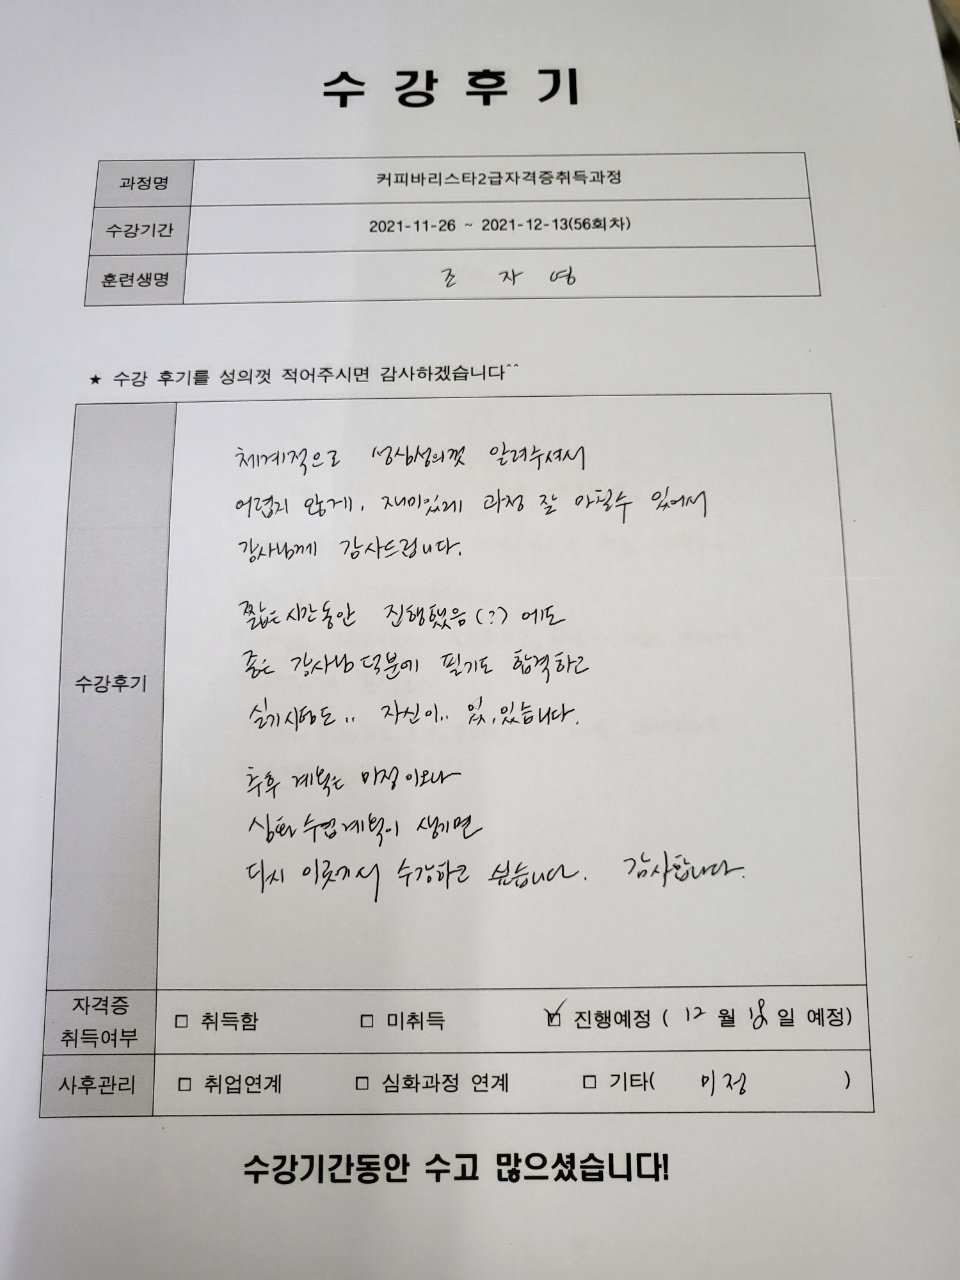 수 강 후 기
과정명 커피바리스타2급자격증취득과정
수강기간 2021-11-26 ~ 2021-12-13(56회차)
훈련생명 조 자 영
★ 수강 후기를 성의껏 적어주시면 감사하겠습니다^^
수강후기
체계적으로 성심성의껏 알려주셔서
어렵지 않게, 재미있게 과정 잘 마칠수 있어서
강사님께 감사드립니다.
짧은 시간동안 진행했음(?)에도
좋은 강사님 덕분에 필기도 합격하고
실기시험도.. 자신이.. 있,있습니다.
추후 계획은 미정이오나
심화수업계획이 생기면
다시 이곳에서 수강하고 싶습니다. 감사합니다.
자격증
취득여부
□ 취득함 □ 미취득 ☑ 진행예정 ( 12 월 18 일 예정)
사후관리 □ 취업연계 □ 심화과정 연계 □ 기타( 미정 )
수강기간동안 수고 많으셨습니다!